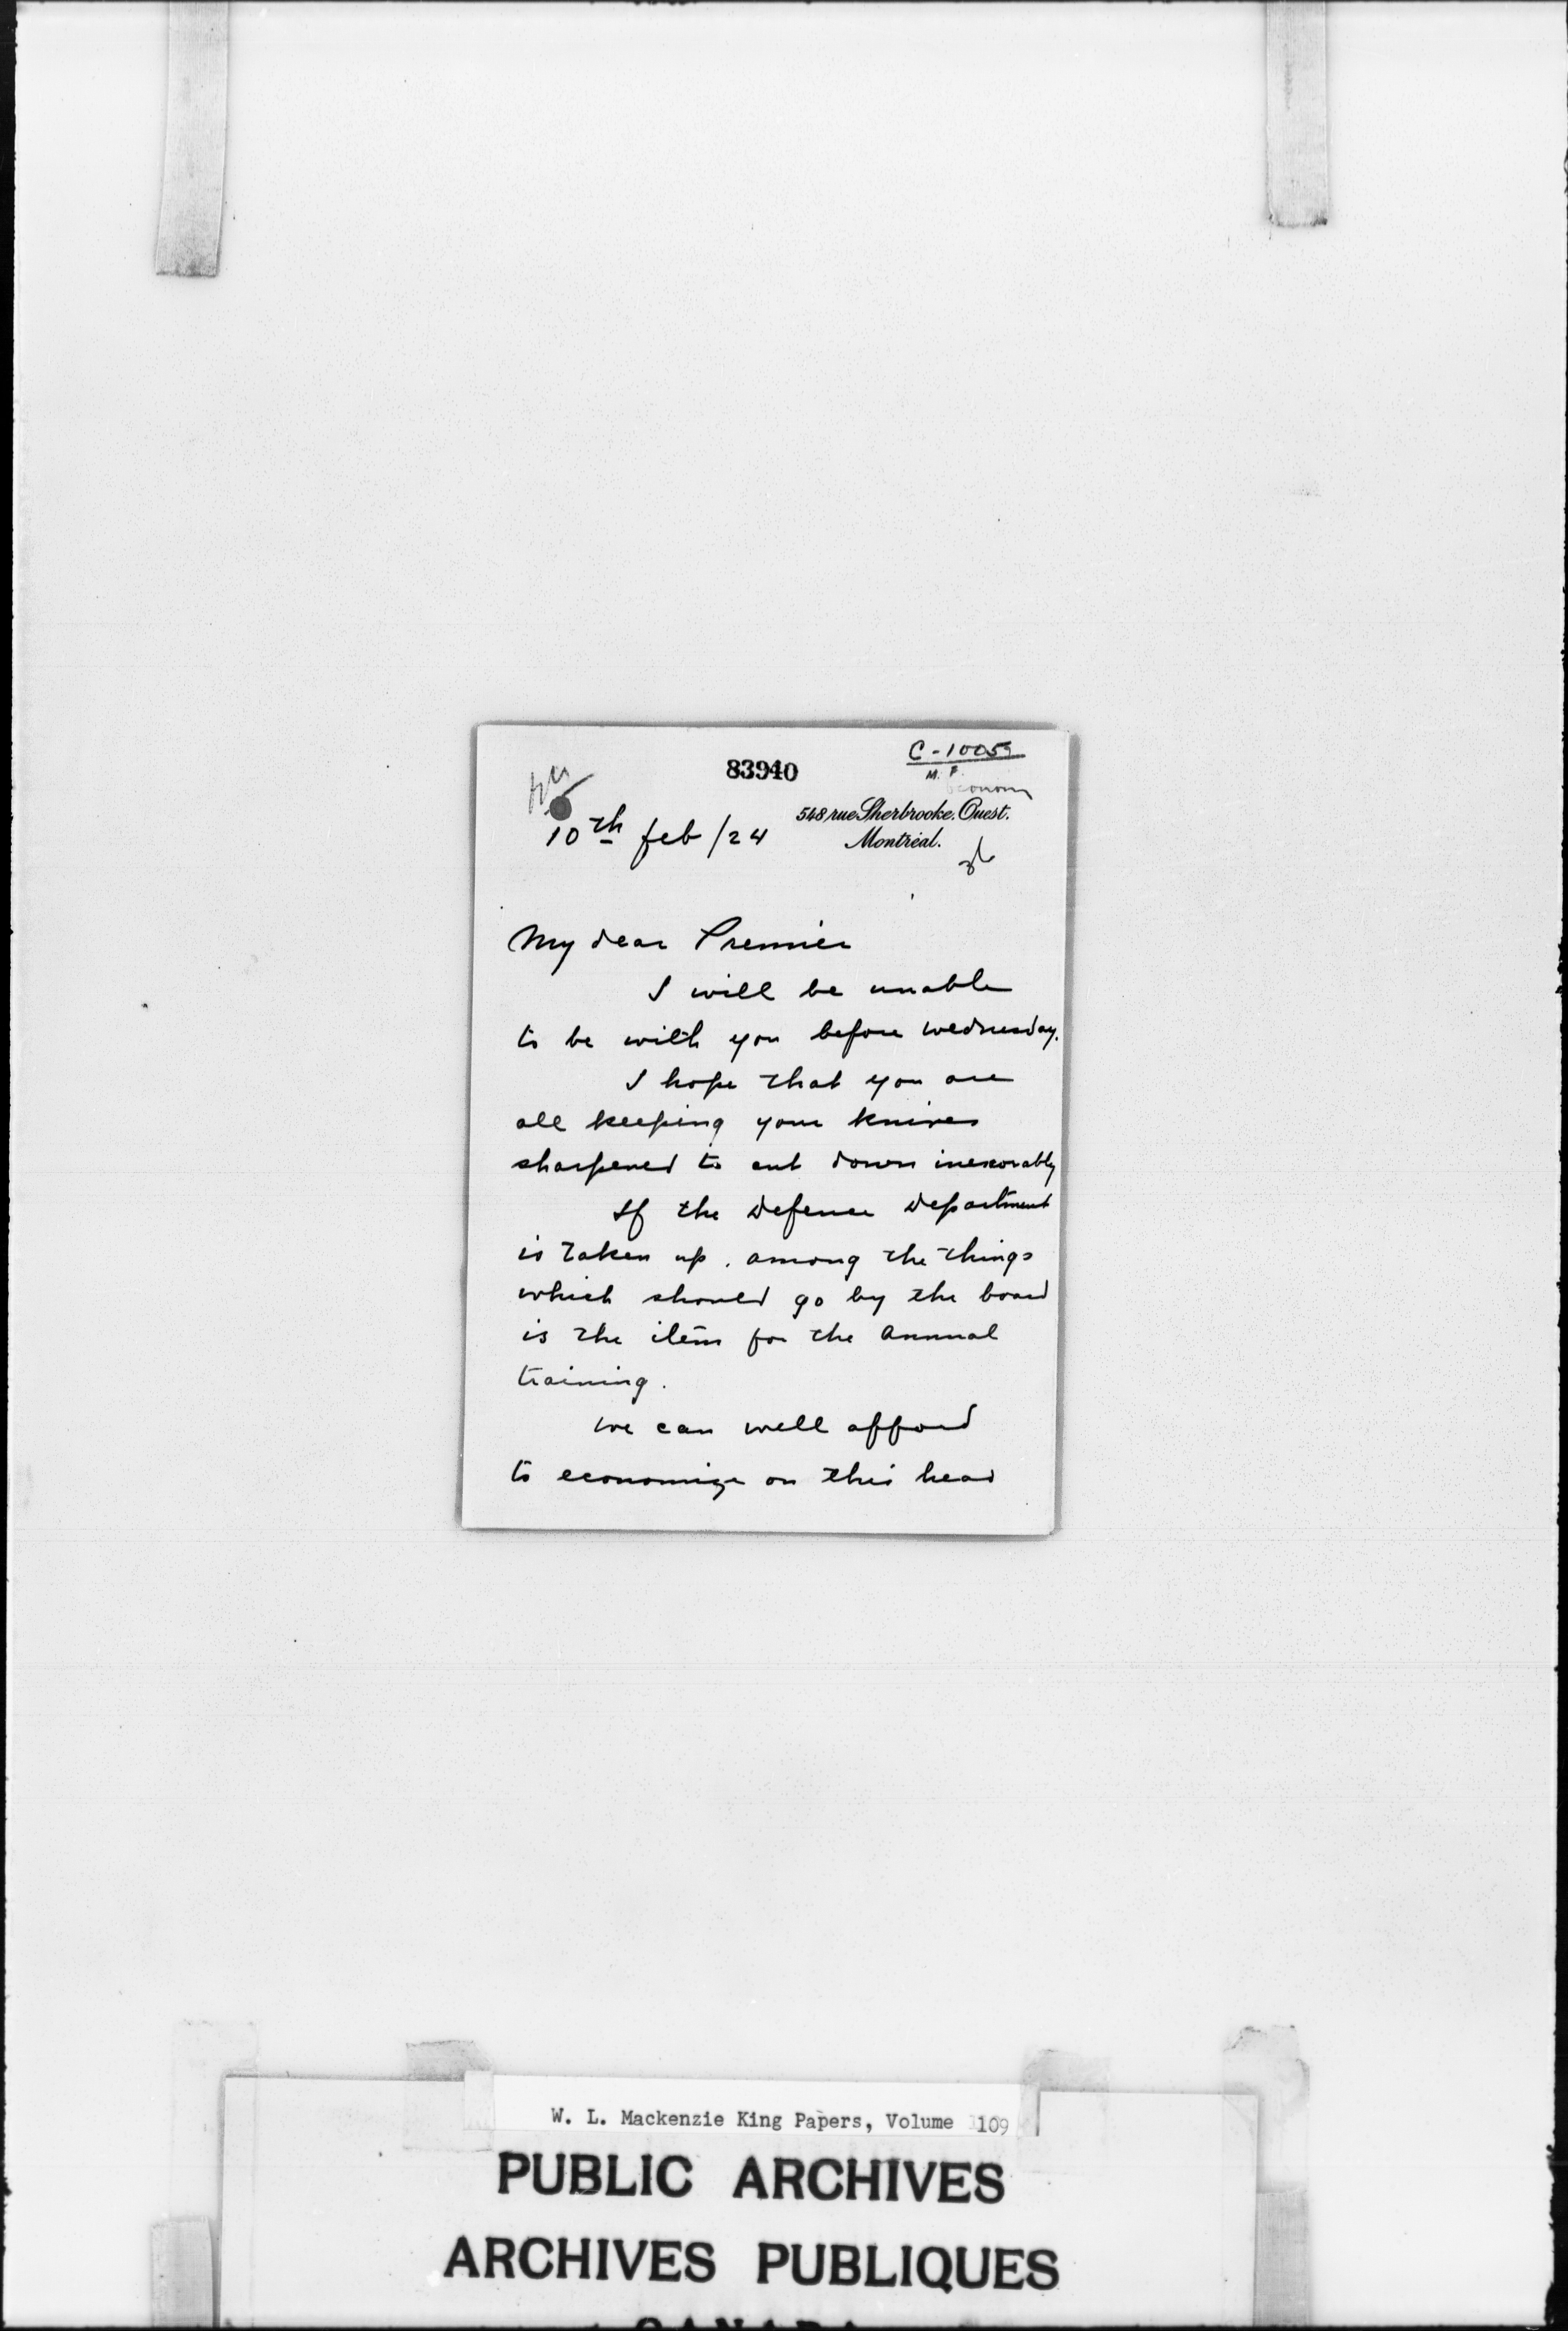 83940
C-10059
M. F.
economy
548 rue Sherbrooke. Ouest.
Montréal.
10th feb/24
My dear Premier
I will be unable
to be with you before Wednesday.
I hope that you are
all keeping your knives
sharpened to cut down inexorably
If the Defence Department
is taken up. among the things
which should go by the board
is the item for the annual
training.
We can well afford
to economize on this head
W. L. Mackenzie King Papers, Volume 109
PUBLIC ARCHIVES
ARCHIVES PUBLIQUES
CANADA